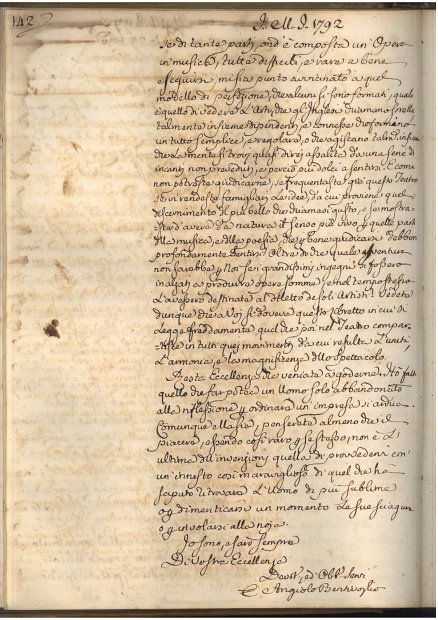 142
I. M. I. 1792
se di tante parti, ond' è composta un' Opera
in musica, tutte difficili, e rare a bene
eseguirsi, mi sia punto avvicinato a quel
modello di perfezione, che alcuni si sono formati, quale
è quello di vedere le Arti, che gl' Inglesi chiamano sorelle
talmente insieme dipendenti, e connesse che formino
un tutto semplice, e regolare, e che vi siano talora
che la mente si trovi quasi direi assalita da una serie di
incanti non preveduti, e perciò più dolci a sentirsi. E come
non potreste giudicarne, se frequentaste questo Teatro
se vi rendeste famigliari le idee, da cui proviene quel
discernimento del più bello che chiamasi gusto, e se mostra-
ste d' avere da natura il senso più vivo per quelle parti
della musica, e della poesia, che per bene giudicare debbon
profondamente sentirsi. Oltre di che quale sventura
non sarebbe per Noi se i grandissimi ingegni si fossero
a produrre opere somme, e nel tempo stesso
le avessero destinate al diletto de' soli Artisti. Vedete
dunque che a Voi si doveva questo libretto in cui si
legge freddamente quel che poi nel Teatro compar-
in tutti quei movimenti da cui risulta l' unità,
l' armonia, e la magnificenza dello spettacolo.
Resta Eccellenza che veniate a goderne. Ho fatto
quello che far potea un Uomo solo abbandonato
alla riflessione per ordinare un' impresa sì ardua.
Comunque ella sia, pensate almeno che il
piacere, essendo così raro, e sì fugace, non è l'
ultima dell' invenzioni quella di provvederci con
un' innesto così maraviglioso di quel che ha
saputo ritrovare l' Uomo di più sublime
o per dimenticare un momento le sue sciagure
o per involarsi alla noja.
Io sono, e sarò sempre
Di Vostra Eccellenza
Devot. ed Obb. Serv.
Angiolo Bentivoglio